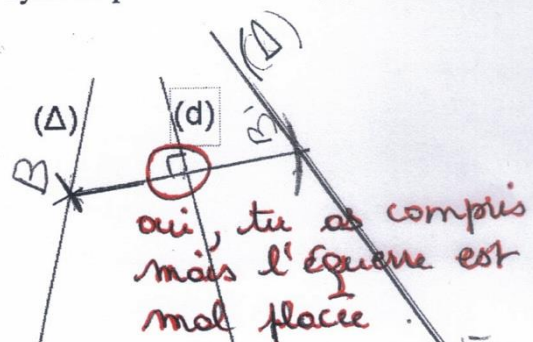 (Δ)
(Δ)
(d)
B'
B
oui, tu as compris
mais l'équerre est
mal placée